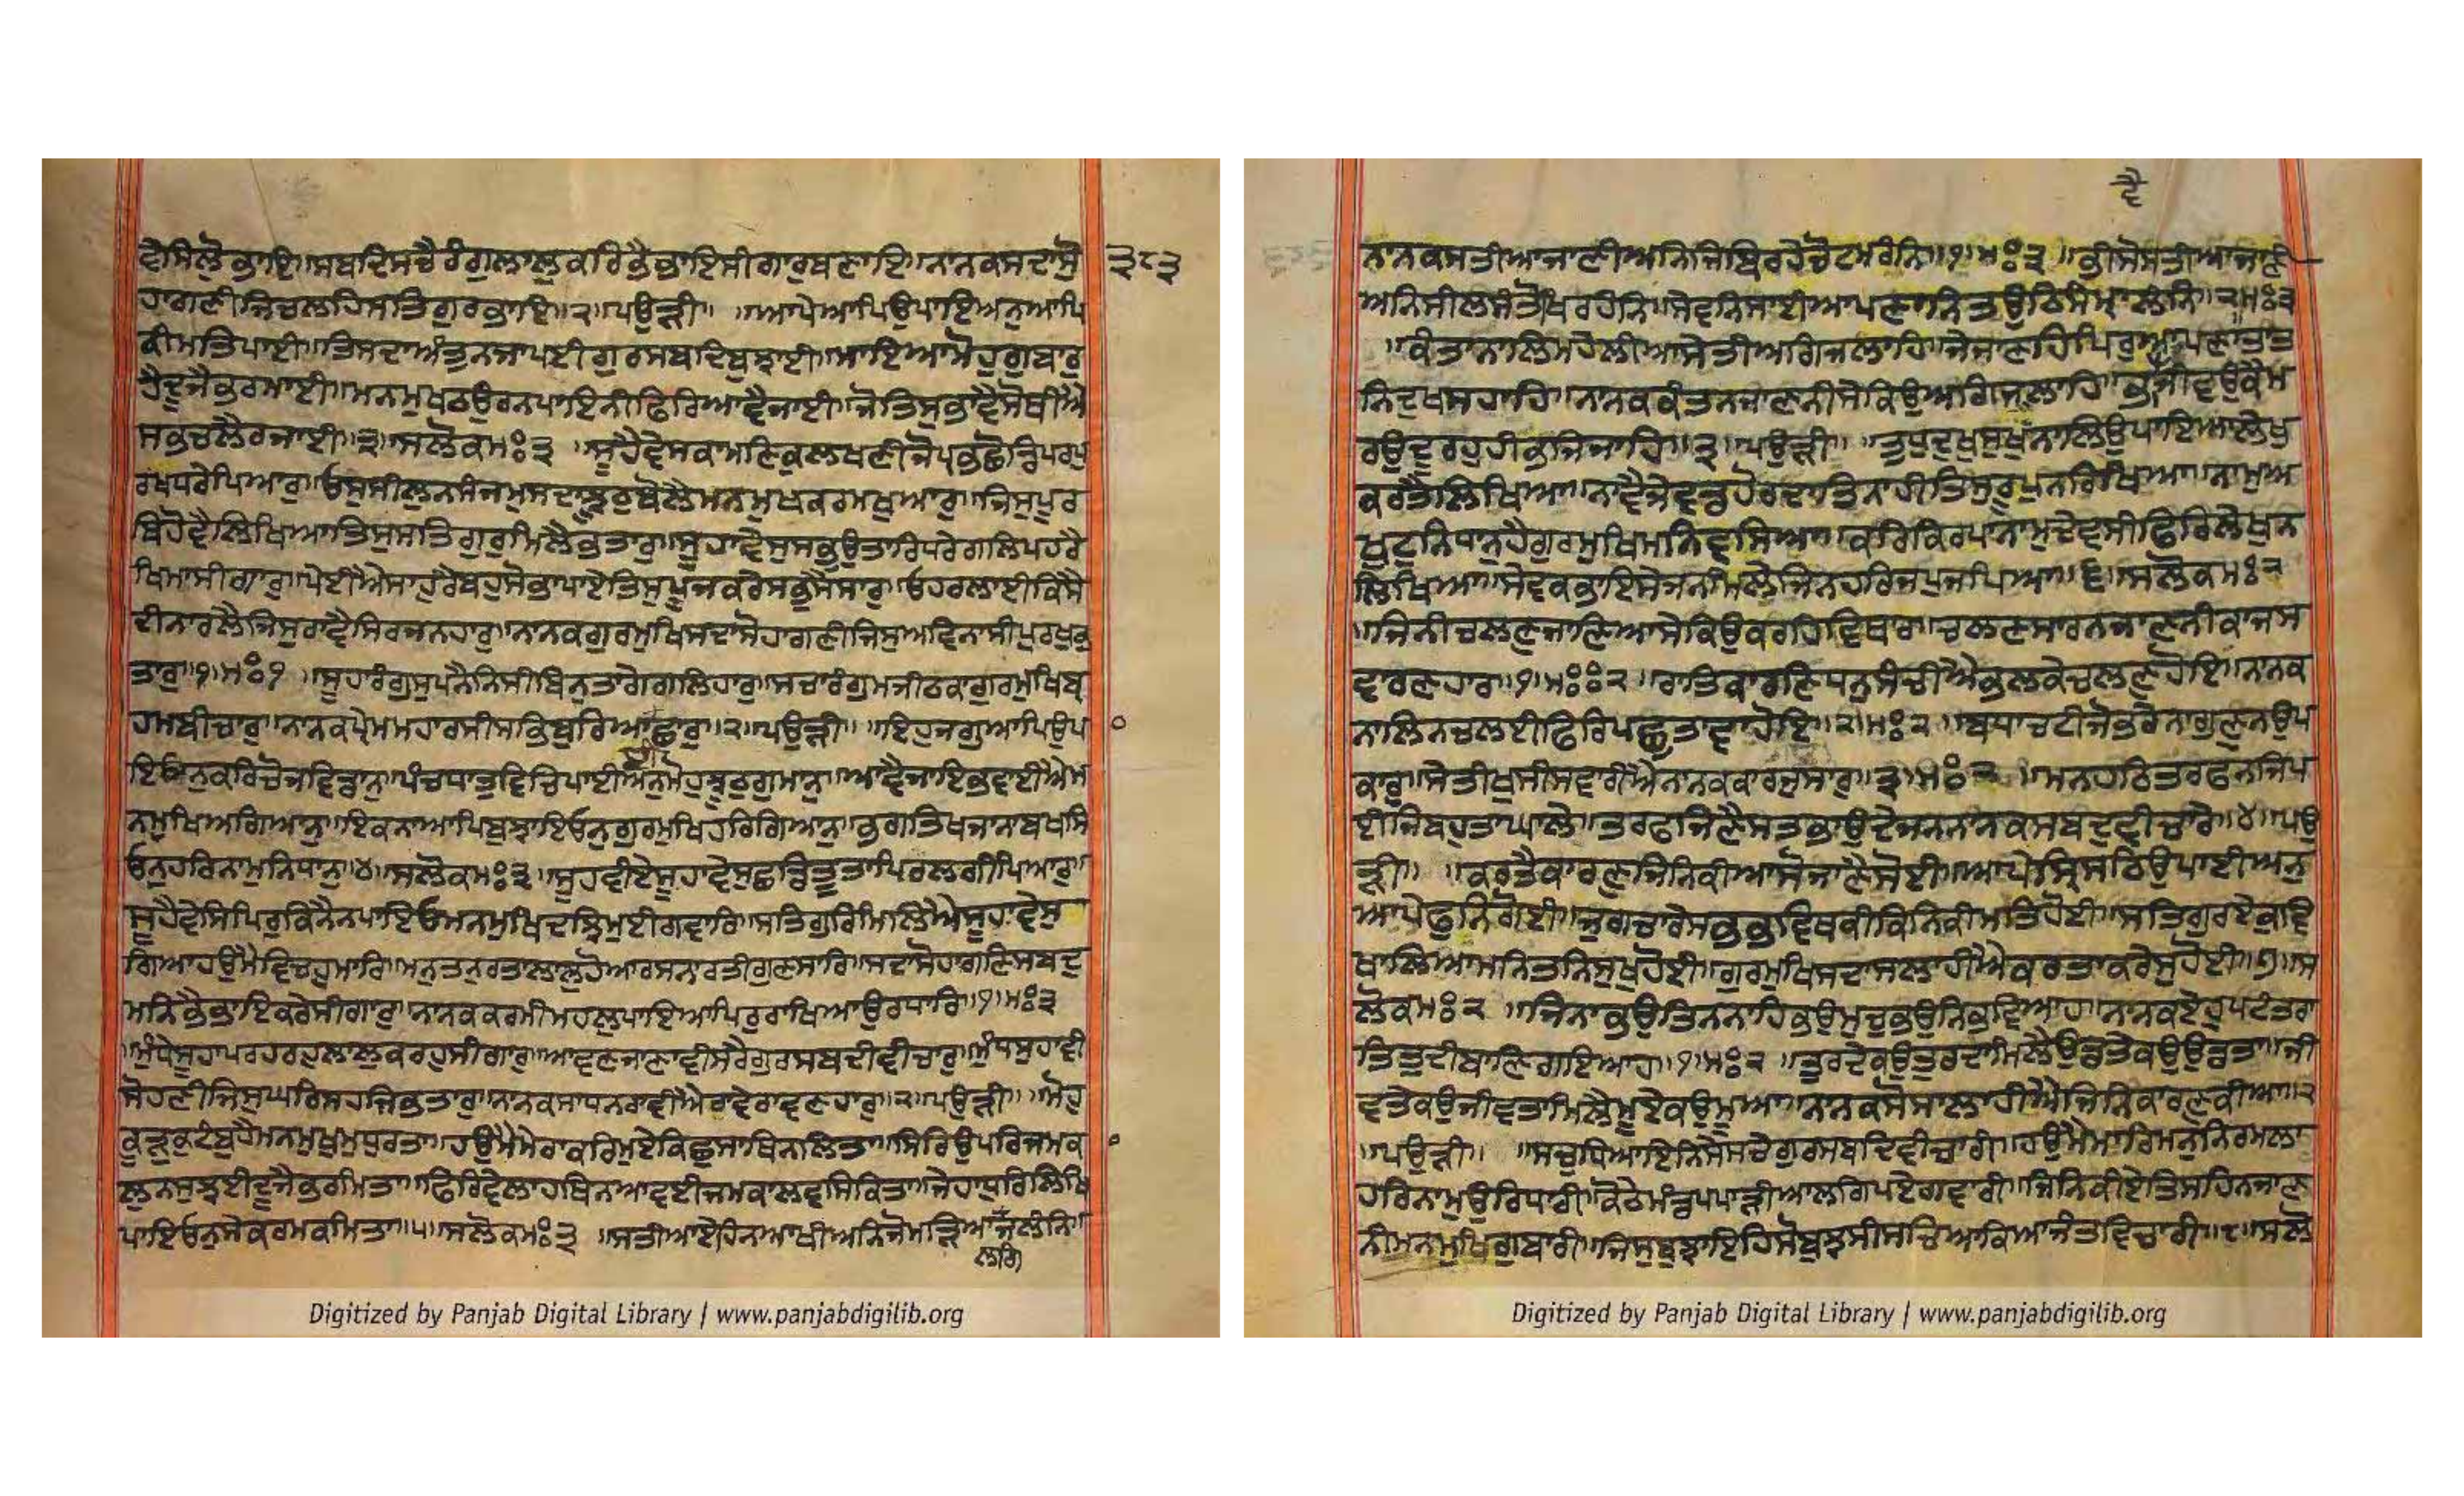 ਵੈਸਿਲੋਭਾਇ॥ਸਬਦਿਸਚੈਰੰਗੁਲਾਲੁਕਰਿਭੈਭਾਇਸੀਗਾਰੁਬਣਾਇ॥ਨਾਨਕਸਦਾਸੋ ੩੮੩
ਹਾਗਣੀਜਿਚਲਹਿਸਤਿਗੁਰਭਾਇ॥੨॥ਪਉੜੀ॥ ॥ਆਪੇਆਪਿਉਪਾਇਅਨੁਆਪਿ
ਕੀਮਤਿਪਾਈ॥ਤਿਸਦਾਅੰਤੁਨਜਾਪਈਗੁਰਸਬਦਿਬੁਝਾਈ॥ਮਾਇਆਮੋਹੁਗੁਬਾਰੁ
ਹੈਦੂਜੈਭਰਮਾਈ॥ਮਨਮੁਖਠਉਰਨਪਾਇਨੀਫਿਰਿਆਵੈਜਾਈ॥ਜੋਤਿਸੁਭਾਵੈਸੋਥੀਐ
ਸਭਚਲੈਰਜਾਈ॥੩॥ਸਲੋਕਮਃ੩ ॥ਸੂਹੈਵੇਸਕਾਮਣਿਕੁਲਖਣੀਜੋਪ੍ਰਭਛੋਡਿਪਰਪੁ
ਰਖਧਰੇਪਿਆਰੁ॥ਓਸੁਸੀਲੁਨਸੰਜਮੁਸਦਾਝੂਠੁਬੋਲੈਮਨਮੁਖਕਰਮਖੁਆਰੁ॥ਜਿਸੁਪੂਰ
ਬਿਹੋਵੈਲਿਖਿਆਤਿਸੁਸਤਿਗੁਰੁਮਿਲੈਭਤਾਰੁ॥ਸੂਹਾਵੇਸੁਸਭੁਉਤਾਰਿਧਰੇਗਲਿਪਹਰੈ
ਖਿਮਾਸੀਗਾਰੁ॥ਪੇਈਐਸਾਹੁਰੈਬਹੁਸੋਭਾਪਾਏਤਿਸੁਪੂਜਕਰੇਸਭੁਸੈਸਾਰੁ॥ਓਹਰਲਾਈਕਿਸੈ
ਦੀਨਾਰਲੈਜਿਸੁਰਾਵੈਸਿਰਜਨਹਾਰੁ॥ਨਾਨਕਗੁਰਮੁਖਿਸਦਾਸੋਹਾਗਣੀਜਿਸੁਅਵਿਨਾਸੀਪੁਰਖੁਭ
ਤਾਰੁ॥੧॥ਮਃ੧ ॥ਸੂਹਾਰੰਗੁਸੁਪਨੈਨਿਸੀਬਿਨੁਤਾਗੇਗਲਿਹਾਰੁ॥ਸਚਾਰੰਗੁਮਜੀਠਕਾਗੁਰਮੁਖਿਬ੍ਰ
ਹਮਬੀਚਾਰੁ॥ਨਾਨਕਪ੍ਰੇਮਮਹਾਰਸੀਸਭਿਬੁਰਿਆਛਾਰੁ॥੨॥ਪਉੜੀ॥ ॥ਇਹੁਜਗੁਆਪਿਉਪ
ਇਓਨੁਕਰਿਚੋਜਵਿਡਾਨੁ॥ਪੰਚਧਾਤੁਵਿਚਿਪਾਈਅਨੁਮੋਹੁਝੂਠੁਗੁਮਾਨੁ॥ਆਵੈਜਾਇਭਵਾਈਐਮ
ਨਮੁਖਿਅਗਿਆਨੁ॥ਇਕਨਾਆਪਿਬੁਝਾਇਓਨੁਗੁਰਮੁਖਿਹਰਿਗਿਆਨੁ॥ਭਗਤਿਖਜਾਨਾਬਖਸਿ
ਓਨੁਹਰਿਨਾਮੁਨਿਧਾਨੁ॥੪॥ਸਲੋਕਮਃ੩ ॥ਸੂਹਵੀਏਸੂਹਾਵੇਸੁਛਡਿਤੂਤਾਪਿਰਲਗੀਪਿਆਰੁ॥
ਸੂਹੈਵੇਸਿਪਿਰੁਕਿਨੈਨਪਾਇਓਮਨਮੁਖਿਦਝਿਮੁਈਗਵਾਰਿ॥ਸਤਿਗੁਰਿਮਿਲਿਐਸੂਹਾਵੇਸੁ
ਗਿਆਹਉਮੈਵਿਚਹੁਮਾਰਿ॥ਮਨੁਤਨੁਰਤਾਲਾਲੁਹੋਆਰਸਨਾਰਤੀਗੁਣਸਾਰਿ॥ਸਦਾਸੋਹਾਗਣਿਸਬਦੁ
ਮਨਿਭੈਭਾਇਕਰੇਸੀਗਾਰੁ॥ਨਾਨਕਕਰਮੀਮਹਲੁਪਾਇਆਪਿਰੁਰਾਖਿਆਉਰਧਾਰਿ॥੧॥ਮਃ੩
॥ਮੁੰਧੇਸੂਹਾਪਰਹਰਹੁਲਾਲੁਕਰਹੁਸੀਗਾਰੁ॥ਆਵਣਜਾਣਾਵੀਸਰੈਗੁਰਸਬਦੀਵੀਚਾਰੁ॥ਮੁੰਧਸੁਹਾਵੀ
ਸੋਹਣੀਜਿਸੁਘਰਿਸਹਜਿਭਤਾਰੁ॥ਨਾਨਕਸਾਧਨਰਾਵੀਐਰਾਵੇਰਾਵਣਹਾਰੁ॥੨॥ਪਉੜੀ॥ ॥ਮੋਹੁ
ਕੂੜੁਕਟੰਬੁਹੈਮਨਮੁਖੁਮੁਧੁਰਤਾ॥ਹਉਮੈਮੇਰਾਕਰਿਮੁਏਕਿਛੁਸਾਥਿਨਾਲਿਤਾ॥ਸਿਰਿਉਪਰਿਜਮਕ
ਲੁਨਸੁਝਈਦੂਜੈਭਰਮਿਤਾ॥ਫਿਰਿਵੇਲਾਹਥਿਨਆਵਈਜਮਕਾਲਵਸਿਕਿਤਾ॥ਜੇਹਾਧੁਰਿਲਿਖਿ
ਪਾਇਓਨੁਸੇਕਰਮਕਮਿਤਾ॥੫॥ਸਲੋਕਮਃ੩ ॥ਸਤੀਆਏਹਿਨਆਖੀਅਨਿਜੋਮੜਿਆਜਲੰਨਿ॥
ਲਗਿ
ਵੈ
ਨਾਨਕਸਤੀਆਜਾਣੀਅਨਿਜਿਬਿਰਹੇਚੋਟਮਰੰਨਿ॥੧॥ਮਃ੩ ॥ਭੀਸੋਸਤੀਆਜਾਣੀ
ਅਨਿਸੀਲਸੰਤੋਖਿਰਹੰਨਿ॥ਸੇਵਨਿਸਾਈਆਪਣਾਨਿਤਉਠਿਸੰਮ੍ਹਾਲੰਨਿ॥੨॥ਮਃ੩
॥ਕੰਤਾਨਾਲਿਮਹੇਲੀਆਸੇਤੀਅਗਿਜਲਾਹਿ॥ਜੇਜਾਣਹਿਪਿਰੁਆਪਣਾਤਾਤ
ਨਿਦੁਖਸਹਾਹਿ॥ਨਾਨਕਕੰਤਨਜਾਣਨੀਸੇਕਿਉਅਗਿਜਲਾਹਿ॥ਭਾਵੈਜੀਵਉਕੈਮ
ਰਉਦੂਰਹੁਹੀਭਜਿਜਾਹਿ॥੩॥ਪਉੜੀ॥ ॥ਤੁਧੁਦੁਖੁਸੁਖੁਨਾਲਿਉਪਾਇਆਲੇਖੁ
ਕਰਤੈਲਿਖਿਆ॥ਨਾਵੈਜੇਵਡਹੋਰਦਾਤਿਨਾਹੀਤਿਸੁਰੂਪੁਨਰਿਖਿਆ॥ਨਾਮੁਅ
ਖੁਟੁਨਿਧਾਨੁਹੈਗੁਰਮੁਖਿਮਨਿਵਸਿਆ॥ਕਰਿਕਿਰਪਾਨਾਮੁਦੇਵਸੀਫਿਰਿਲੇਖੁਨ
ਲਿਖਿਆ॥ਸੇਵਕਭਾਇਸੇਜਨਮਿਲੇਜਿਨਹਰਿਜਪੁਜਪਿਆ॥੬॥ਸਲੋਕਮਃ੨
॥ਜਿਨੀਚਲਣੁਜਾਣਿਆਸੇਕਿਉਕਰਹਿਵਿਥਾਰ॥ਚਲਣਸਾਰਨਜਾਣਨੀਕਾਜਸ
ਵਾਰਣਹਾਰ॥੧॥ਮਃਃ੨ ॥ਰਾਤਿਕਾਰਣਿਧਨੁਸੰਚੀਐਭਲਕੇਚਲਣੁਹੋਇ॥ਨਾਨਕ
ਨਾਲਿਨਚਲਈਫਿਰਿਪਛੁਤਾਵਾਹੋਇ॥੨॥ਮਃ੨ ॥ਬਧਾਚਟੀਜੋਭਰੇਨਾਗੁਣੁਨਉਪ
ਕਾਰੁ॥ਸੇਤੀਖੁਸੀਸਵਾਰੀਐਨਾਨਕਕਾਰਜੁਸਾਰੁ॥੩॥ਮਃ੨ ॥ਮਨਹਠਿਤਰਫਨਜਿਪ
ਈਜੇਬਹੁਤਾਘਾਲੇ॥ਤਰਫਜਿਣੈਸਤਭਾਉਦੇਜਨਨਾਨਕਸਬਦੁਵੀਚਾਰੇ॥੪॥ਪਉ
ੜੀ॥ ॥ਕਰਤੈਕਾਰਣੁਜਿਨਿਕੀਆਸੋਜਾਣੈਸੋਈ॥ਆਪੇਸ੍ਰਿਸਟਿਉਪਾਈਅਨੁ
ਆਪੇਫੁਨਿਗੋਈ॥ਜੁਗਚਾਰੇਸਭਭਵਿਥਕੀਕਿਨਿਕੀਮਤਿਹੋਈ॥ਸਤਿਗੁਰਏਕੁਵਿ
ਖਾਲਿਆਮਨਿਤਨਿਸੁਖੁਹੋਈ॥ਗੁਰਮੁਖਿਸਦਾਸਲਾਹੀਐਕਰਤਾਕਰੇਸੁਹੋਈ॥੭॥ਸ
ਲੋਕਮਃ੨ ॥ਜਿਨਾਭਉਤਿਨਨਾਹਿਭਉਮੁਚੁਭਉਨਿਭਵਿਆਹ॥ਨਾਨਕਏਹੁਪਟੰਤਰਾ
ਤਿਤੁਦੀਬਾਣਿਗਇਆਹ॥੧॥ਮਃ੨ ॥ਤੁਰਦੇਕਉਤੁਰਦਾਮਿਲੈਉਡਤੇਕਉਉਡਤਾ॥ਜੀ
ਵਤੇਕਉਜੀਵਤਾਮਿਲੈਮੂਏਕਉਮੂਆ॥ਨਾਨਕਸੋਸਾਲਾਹੀਐਜਿਨਿਕਾਰਣੁਕੀਆ॥੨
॥ਪਉੜੀ॥ ॥ਸਚੁਧਿਆਇਨਿਸੇਸਚੇਗੁਰਸਬਦਿਵੀਚਾਰੀ॥ਹਉਮੈਮਾਰਿਮਨੁਨਿਰਮਲਾ
ਹਰਿਨਾਮੁਉਰਿਧਾਰੀ॥ਕੋਠੇਮੰਡਪਮਾੜੀਆਲਗਿਪਏਗਾਵਾਰੀ॥ਜਿਨਿਕੀਏਤਿਸਹਿਨਜਾਣ
ਨੀਮਨਮੁਖਿਗੁਬਾਰੀ॥ਜਿਸੁਬੁਝਾਇਹਿਸੋਬੁਝਸੀਸਚਿਆਕਿਆਜੰਤਵਿਚਾਰੀ॥੮॥ਸਲੋ
Digitized by Panjab Digital Library | www.panjabdigilib.org
Digitized by Panjab Digital Library | www.panjabdigilib.org